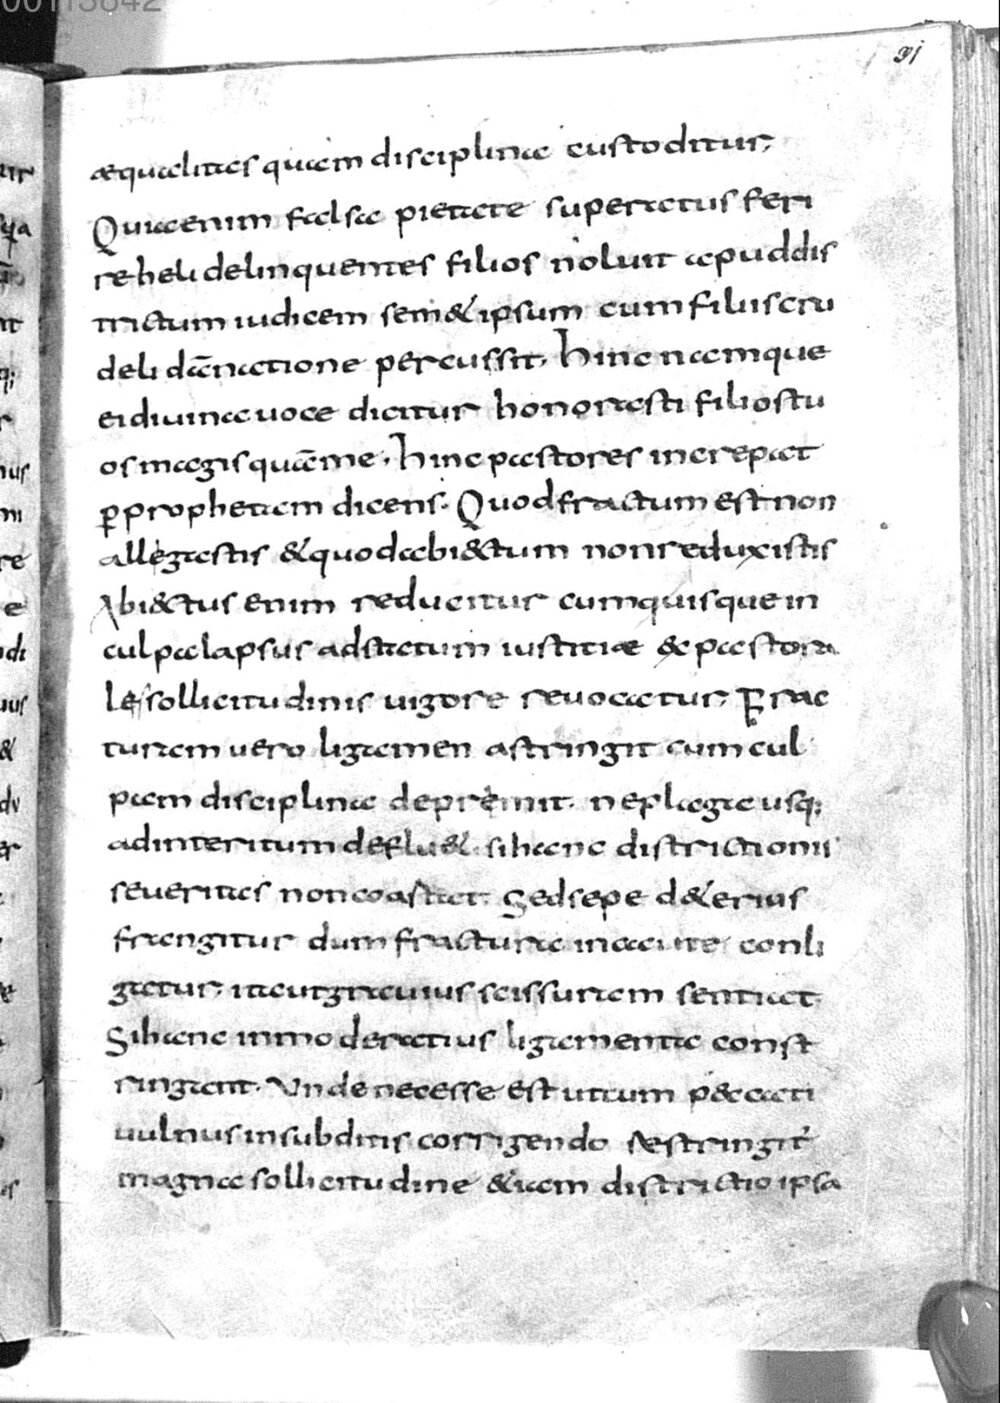 00113842
91
æqualitas quam disciplinae custoditur;
Quia enim falsa pietate superatus feri
re heli delinquentes filios noluit apud dis
trictum iudicem sem&ipsum cum filiis cru
deli dānatione percussit. hinc namque
ei diuina uoce dicitur honorasti filios tu
os magis quāme. hinc pastores increpat
ꝑ prophetam dicens. Quod fractum est non
allegastis &quod abi&tum non reduxistis
Abi&tus enim reducitur cum quisque in
culpa lapsus ad statum iustitiæ & pastora
le sollicitudinis uigore reuocatur; Frac
turam uero ligamen astringit cum cul
pam disciplina depremit. ne plaga usq;
ad interitum deflu&. si hanc districtionis
seueritas non coastat. Sed sepe d&erius
frangitur dum fractura incaute conli
gatur; ita ut grauius scissuram sentiat
Si hanc inmoderatius ligamenta const
ringant. Unde necesse est ut cum peccati
uulnus in subditis corrigendo restringit
magna sollicitudine &iam districtio ipsa